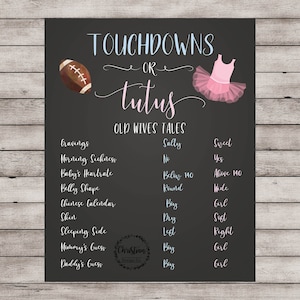 TOUCHDOWNS
OR
tutus
OLD WIVES TALES
Cravings Salty Sweet
Morning Sickness No Yes
Baby's Heartrate Below 140 Above 140
Belly Shape Round Wide
Chinese Calendar Boy Girl
Skin Dry Soft
Sleeping Side Left Right
Mommy's Guess Boy Girl
Daddy's Guess Boy Girl